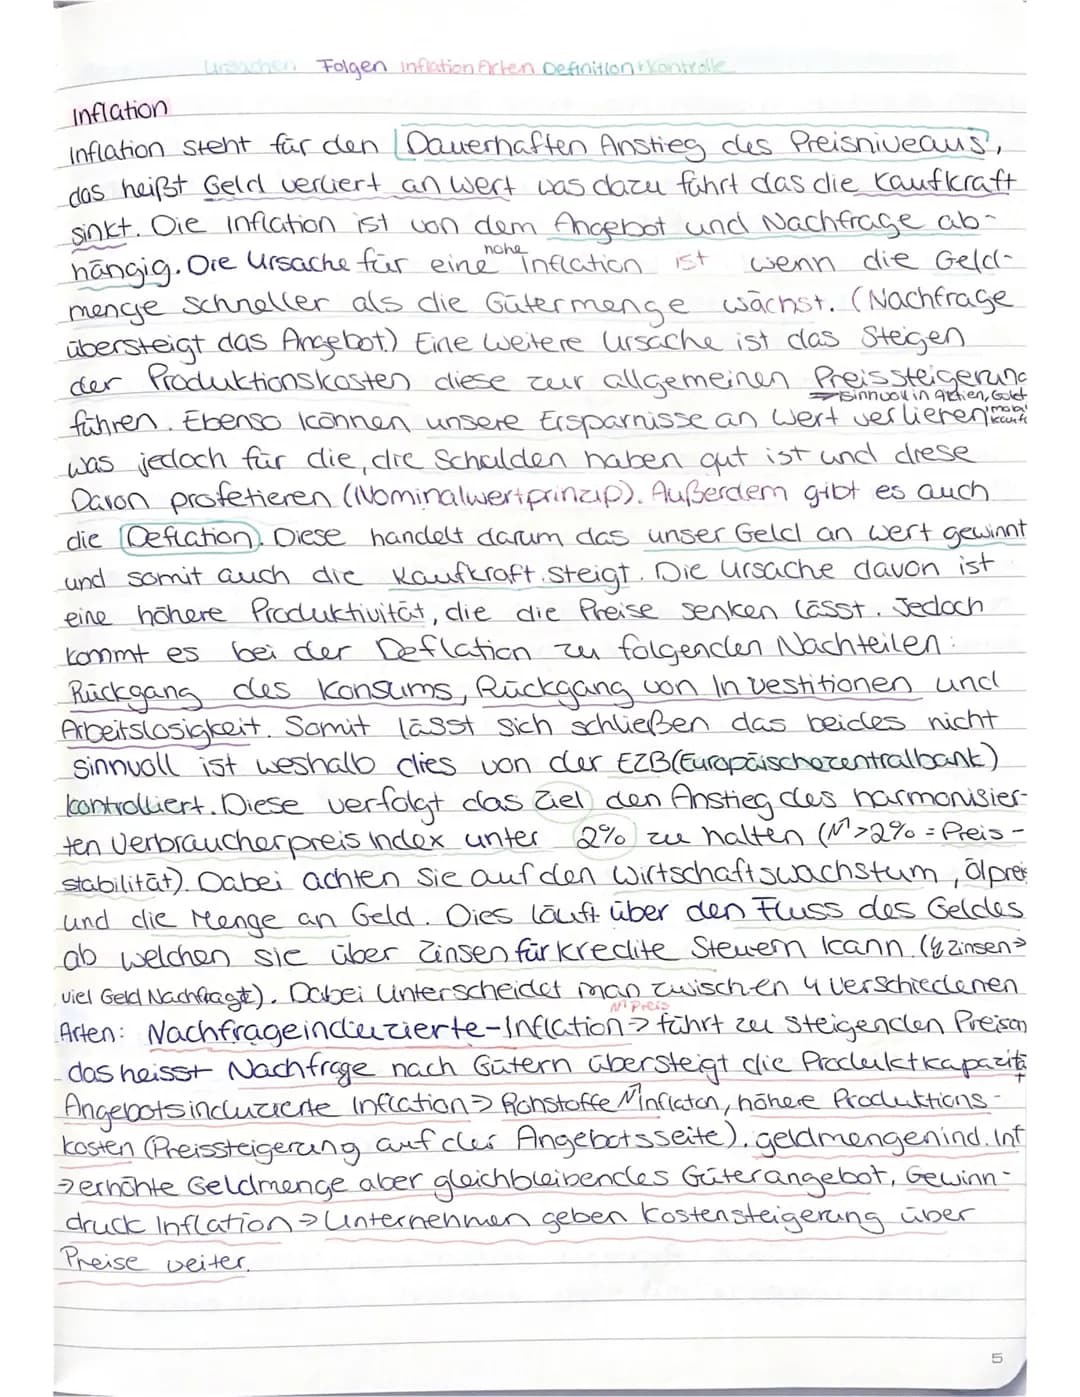 Ursachen Folgen Inflation Arten Definition + Kontrolle
Inflation
Inflation steht für den Dauerhaften Anstieg des Preisniveaus,
das heißt Geld verliert an wert was dazu führt das die Kaufkraft
sinkt. Die Inflation ist von dem Angebot und Nachfrage ab-
hängig. Die Ursache für eine hohe Inflation ist wenn die Geld-
menge schneller als die Gütermenge wächst. (Nachfrage
übersteigt das Angebot.) Eine weitere Ursache ist das Steigen
der Produktionskosten diese zur allgemeinen Preissteigerung
⇒ sinnvoll in Aktien, Gold
führen. Ebenso können unsere Ersparnisse an Wert verlieren
was jedoch für die, die Schulden haben gut ist und diese
Davon profetieren (Nominalwertprinzip). Außerdem gibt es auch
die Deflation. Diese handelt darum das unser Geld an wert gewinnt
und somit auch die Kaufkraft steigt. Die Ursache davon ist
eine höhere Produktivität, die die Preise senken lässt. Jedoch
kommt es bei der Deflation zu folgenden Nachteilen:
Rückgang des Konsums, Rückgang von Investitionen und
Arbeitslosigkeit. Somit lässt sich schließen das beides nicht
sinnvoll ist weshalb dies von der EZB (Europäischezentralbank)
kontrolliert. Diese verfolgt das Ziel den Anstieg des harmonisier-
ten Verbraucherpreis Index unter 2% zu halten ( >2% = Preis-
stabilität). Dabei achten Sie auf den Wirtschaftswachstum, Ölpreis
und die Menge an Geld. Dies läuft über den Fluss des Geldes
ab welchen sie über Zinsen für kredite Steuern kann. ( Zinsen ⇒
viel Geld Nachfragt). Dabei Unterscheidet man zwischen 4 Verschiedenen
Preis
Arten: Nachfrageinduzierte-Inflation → führt zu steigenden Preisen
das heisst Nachfrage nach Gütern übersteigt die Produktkapazität
Angebotsinduzierte Inflation → Rohstoffe Inflaton, höhere Produktions-
kosten (Preissteigerung auf der Angebotsseite). geldmengenind. Inf
→ erhöhte Geldmenge aber gleichbleibendes Güterangebot, Gewinn-
druck Inflation → Unternehmen geben Kostensteigerung über
Preise weiter.
5